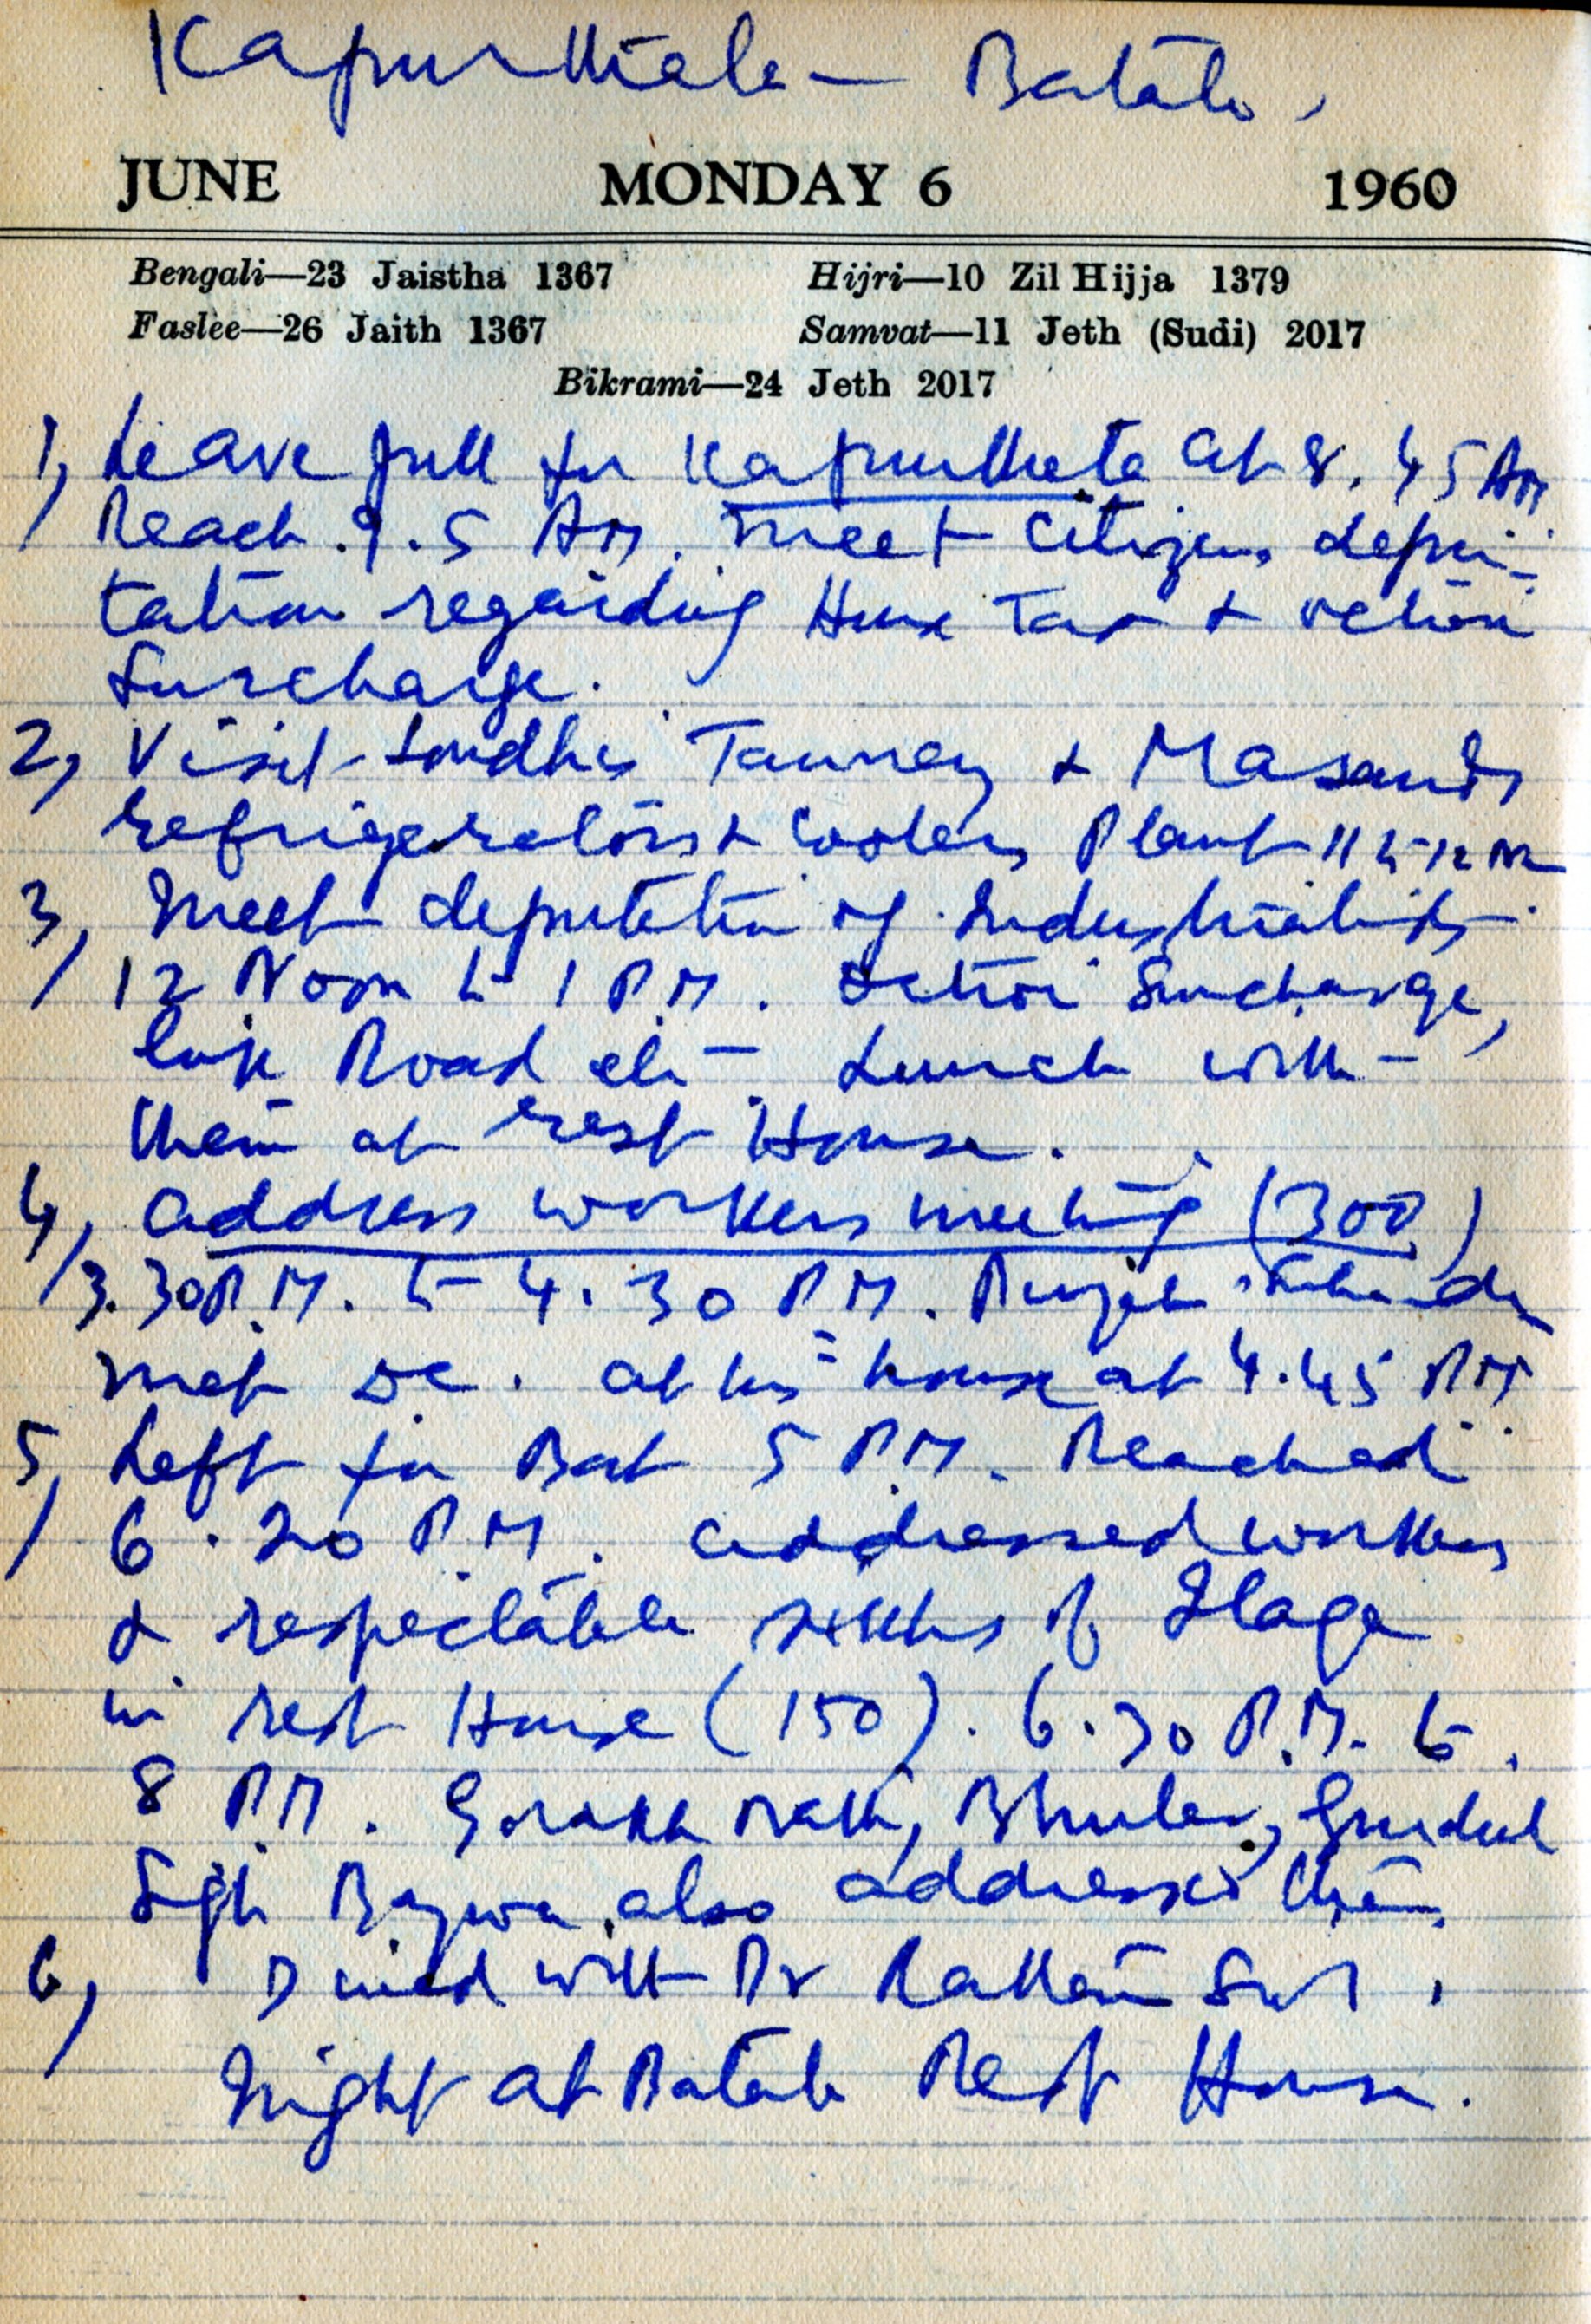 Kapurthala — Batala,
JUNE MONDAY 6 1960
Bengali—23 Jaistha 1367 Hijri—10 Zil Hijja 1379
Faslee—26 Jaith 1367 Samvat—11 Jeth (Sudi) 2017
Bikrami—24 Jeth 2017
1, Leave Jull for Kapurthala at 8.45 AM
Reach 9.5 AM. Meet Citizens depu-
tation regarding House Tax & octroi
Surcharge.
2, Visit Sondhis Tannery & Masands
refrigerators & Coolers Plant 11 to 12 
3, Meet deputation of Industrialists
12 Noon to 1 P.M. Octroi Surcharge,
link Road etc — Lunch with
them at rest House.
4, address workers meeting (300)
3.30 P.M. to 4.30 P.M. Punjab
met DC. at his house at 4.45 PM
5, Left for Bat 5 P.M. Reached
6.20 P.M. addressed workers
& respectable of Ilaqa
in rest House (150). 6.30 P.M. to
8 P.M. Gorakh Nath, Bhuler, Gurdial
Sgh Bajwa also addressed them.
6, Dined with Dr Rattan
Night at Batala Rest House.